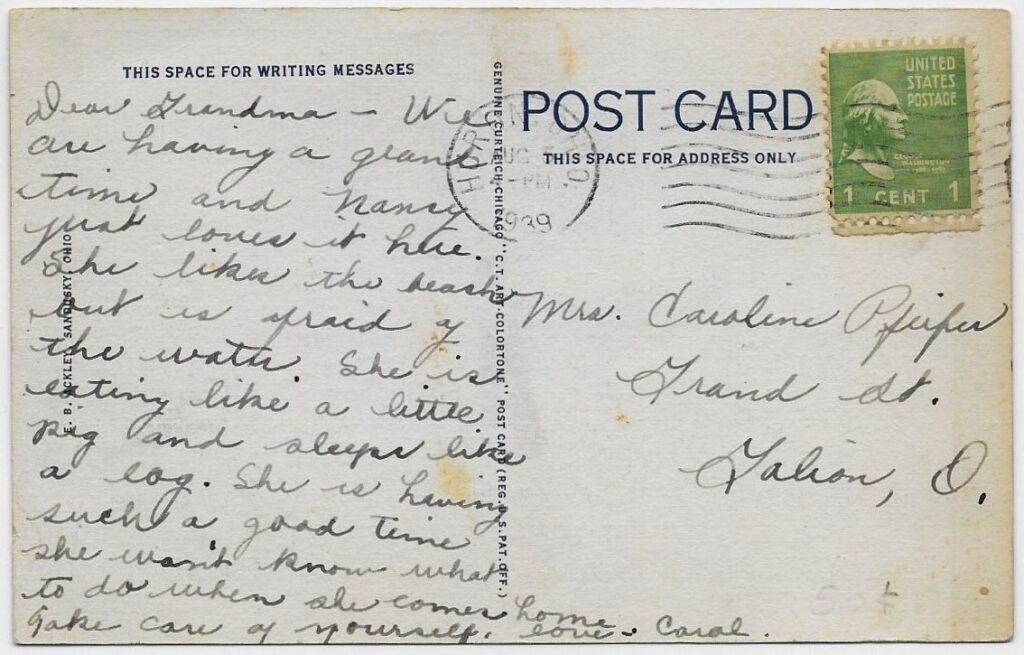 THIS SPACE FOR WRITING MESSAGES
Dear Grandma – We
are having a grand
time and Nancy
just loves it here.
She likes the beach
but is afraid of
the water. She is
eating like a little
pig and sleeps like
a log. She is having
such a good time
she won't know what
to do when she comes home
Take care of yourself. Love – Carol.
E. B. ACKLEY, SANDUSKY, OHIO
GENUINE CURTEICH-CHICAGO "C.T. ART-COLORTONE" POST CARD (REG. U.S. PAT. OFF.)
POST CARD
THIS SPACE FOR ADDRESS ONLY
HURON, OHIO
AUG
PM
1939
UNITED
STATES
POSTAGE
GEORGE
WASHINGTON
1 CENT 1
Mrs. Caroline Pfeifer
Grand St.
Galion, O.
50¢